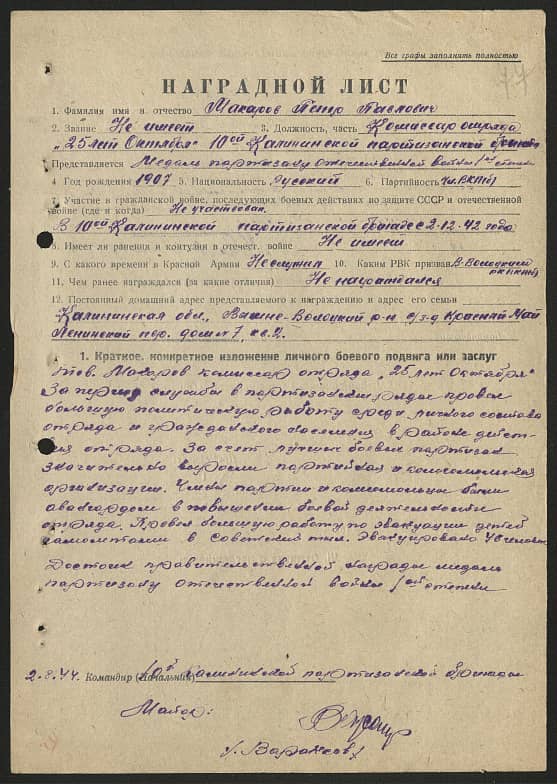 Все графы заполнять полностью
НАГРАДНОЙ ЛИСТ
1. Фамилия имя и отчество Макаров Петр Павлович
2. Звание Не имеет 3. Должность, часть Комиссар отряда
"25 лет Октября" 10ой Калининской партизанской бригады
Представляется Медаль партизану отечественной войны 1ой степени
4 Год рождения 1907 5. Национальность Русский 6. Партийность Чл. ВКП(б)
7. Участие в гражданской войне, последующих боевых действиях по защите СССР и отечественной
войне (где и когда) Не участвовал
В 10ой Калининской партизанской бригаде с 2.12.42 года
8. Имеет ли ранения и контузии в отечест. войне Не имеет
9. С какого времени в Красной Армии Не служил 10. Каким РВК призван В-Волоцким
РККП(б)
11. Чем ранее награждался (за какие отличия) Не награждался
12. Постоянный домашний адрес представляемого к награждению и адрес его семьи
Калининская обл., Вышне-Волоцкий р-н с/з-д Красный Май
Ленинский пер. дом №7, кв. 2.
1. Краткое, конкретное изложение личного боевого подвига или заслуг
Тов. Макаров комиссар отряда "25 лет Октября"
За период службы в партизанском отряде провел
большую политическую работу среди личного состава
отряда и гражданского населения в районе дейст-
вия отряда. За счет лучших боевых партизан
значительно выросли партийная и комсомольская
организации. Члены партии и комсомольцы были
авангардом в повышении боевой деятельности
отряда. Провел большую работу по эвакуации детей
самолетами в советский тыл. Эвакуировано 48 человек
Достоин правительственной награды медаль
партизану отечественной войны 1ой степени
2.8.44. Командир (Начальник) 10й Калининской партизанской бригады
Майор:
/. Вараксов/